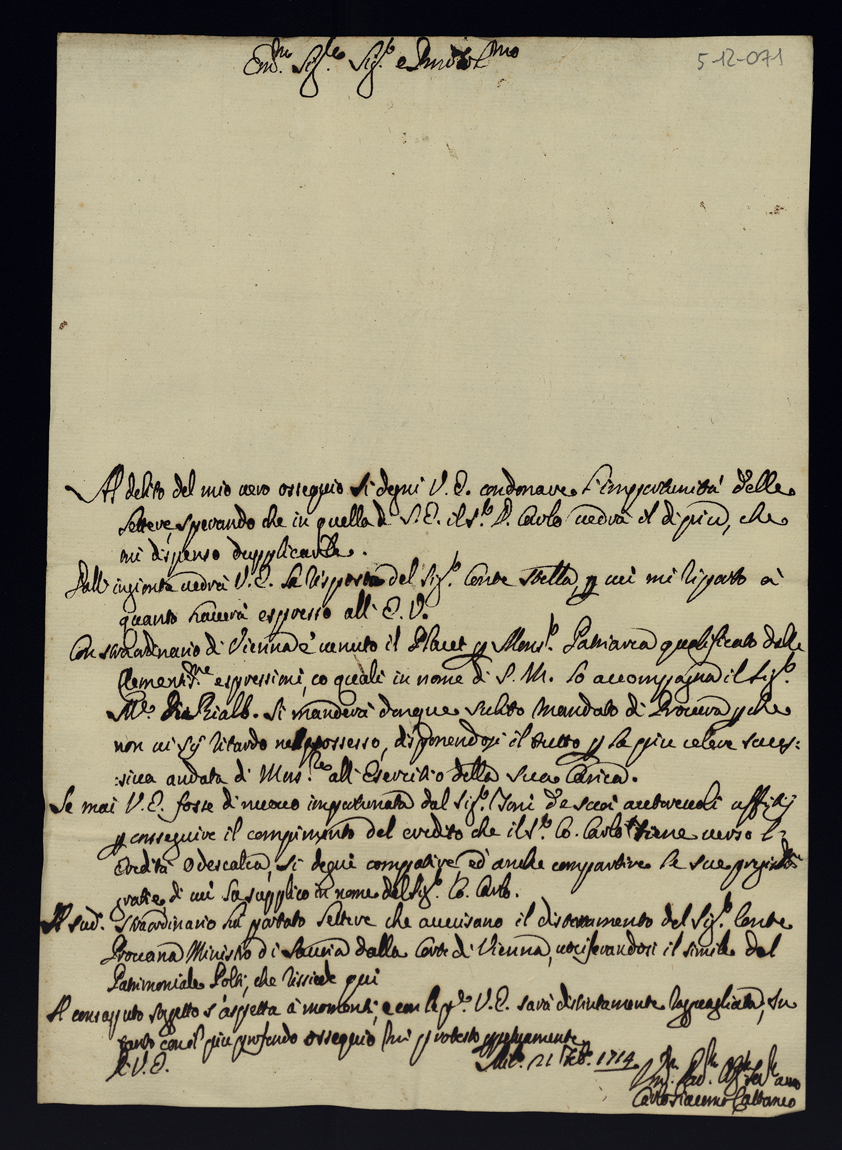 5-12-071
Em.mo Sig.re Sig.r e Pnro͂ Col.mo
Al debito del mio vero ossequio si degni V. E. condonare l'importunità delle
lettere, sperando che in quella di S. E. il S.r D. Carlo vedrà il di più, che
mi dispenso dupplicarle.
Dall'ingionta vedrà V. E. la risposta del Sig.r Conte Stella, p cui mi riporto a
quanto haverà espresso all'E. V.
Con straordinario di Vienna è venuto il Placet p Mons.r Patriarca qualificato dalle
Clementis.me espressioni, co quali in nome di S. M. lo accompagna il Sig.r
M.se di Rialb. Si manderà donque subito Mandato di Procura p che
non vi sij ritardo nel possesso, disponendosi il tutto p la più celere succes:
:siva andata di Mons.re all'Esercitio della sua Carica.
Se mai V. E. fosse di nuovo importunata dal Sig.r de suoi autorevoli uffitij
p conseguire il compimento del credito che il S.r Co. Carlo tiene verso l'
Eredità Odescalca, si degni compatire, ed'anche compartire le sue
gratie di cui la supplico in nome del Sig.r Co. Carlo.
Il sud.o straordinario ha portato lettere che avvisano il disterramento del Sig.r Conte
Provana Ministro di Savoia dalla Corte di Vienna, vociferandosi il simile del
Patrimoniale Polti, che rissiede qui
Il consaputo sogetto s'aspetta a momenti, e con le p.e V. E. sarà distintamente raguagliata, In
tanto con il più profondo ossequio mi protesto
Di V. E.
Mil.o 21 Feb.o 1714
Carlo Giacomo Cattaneo